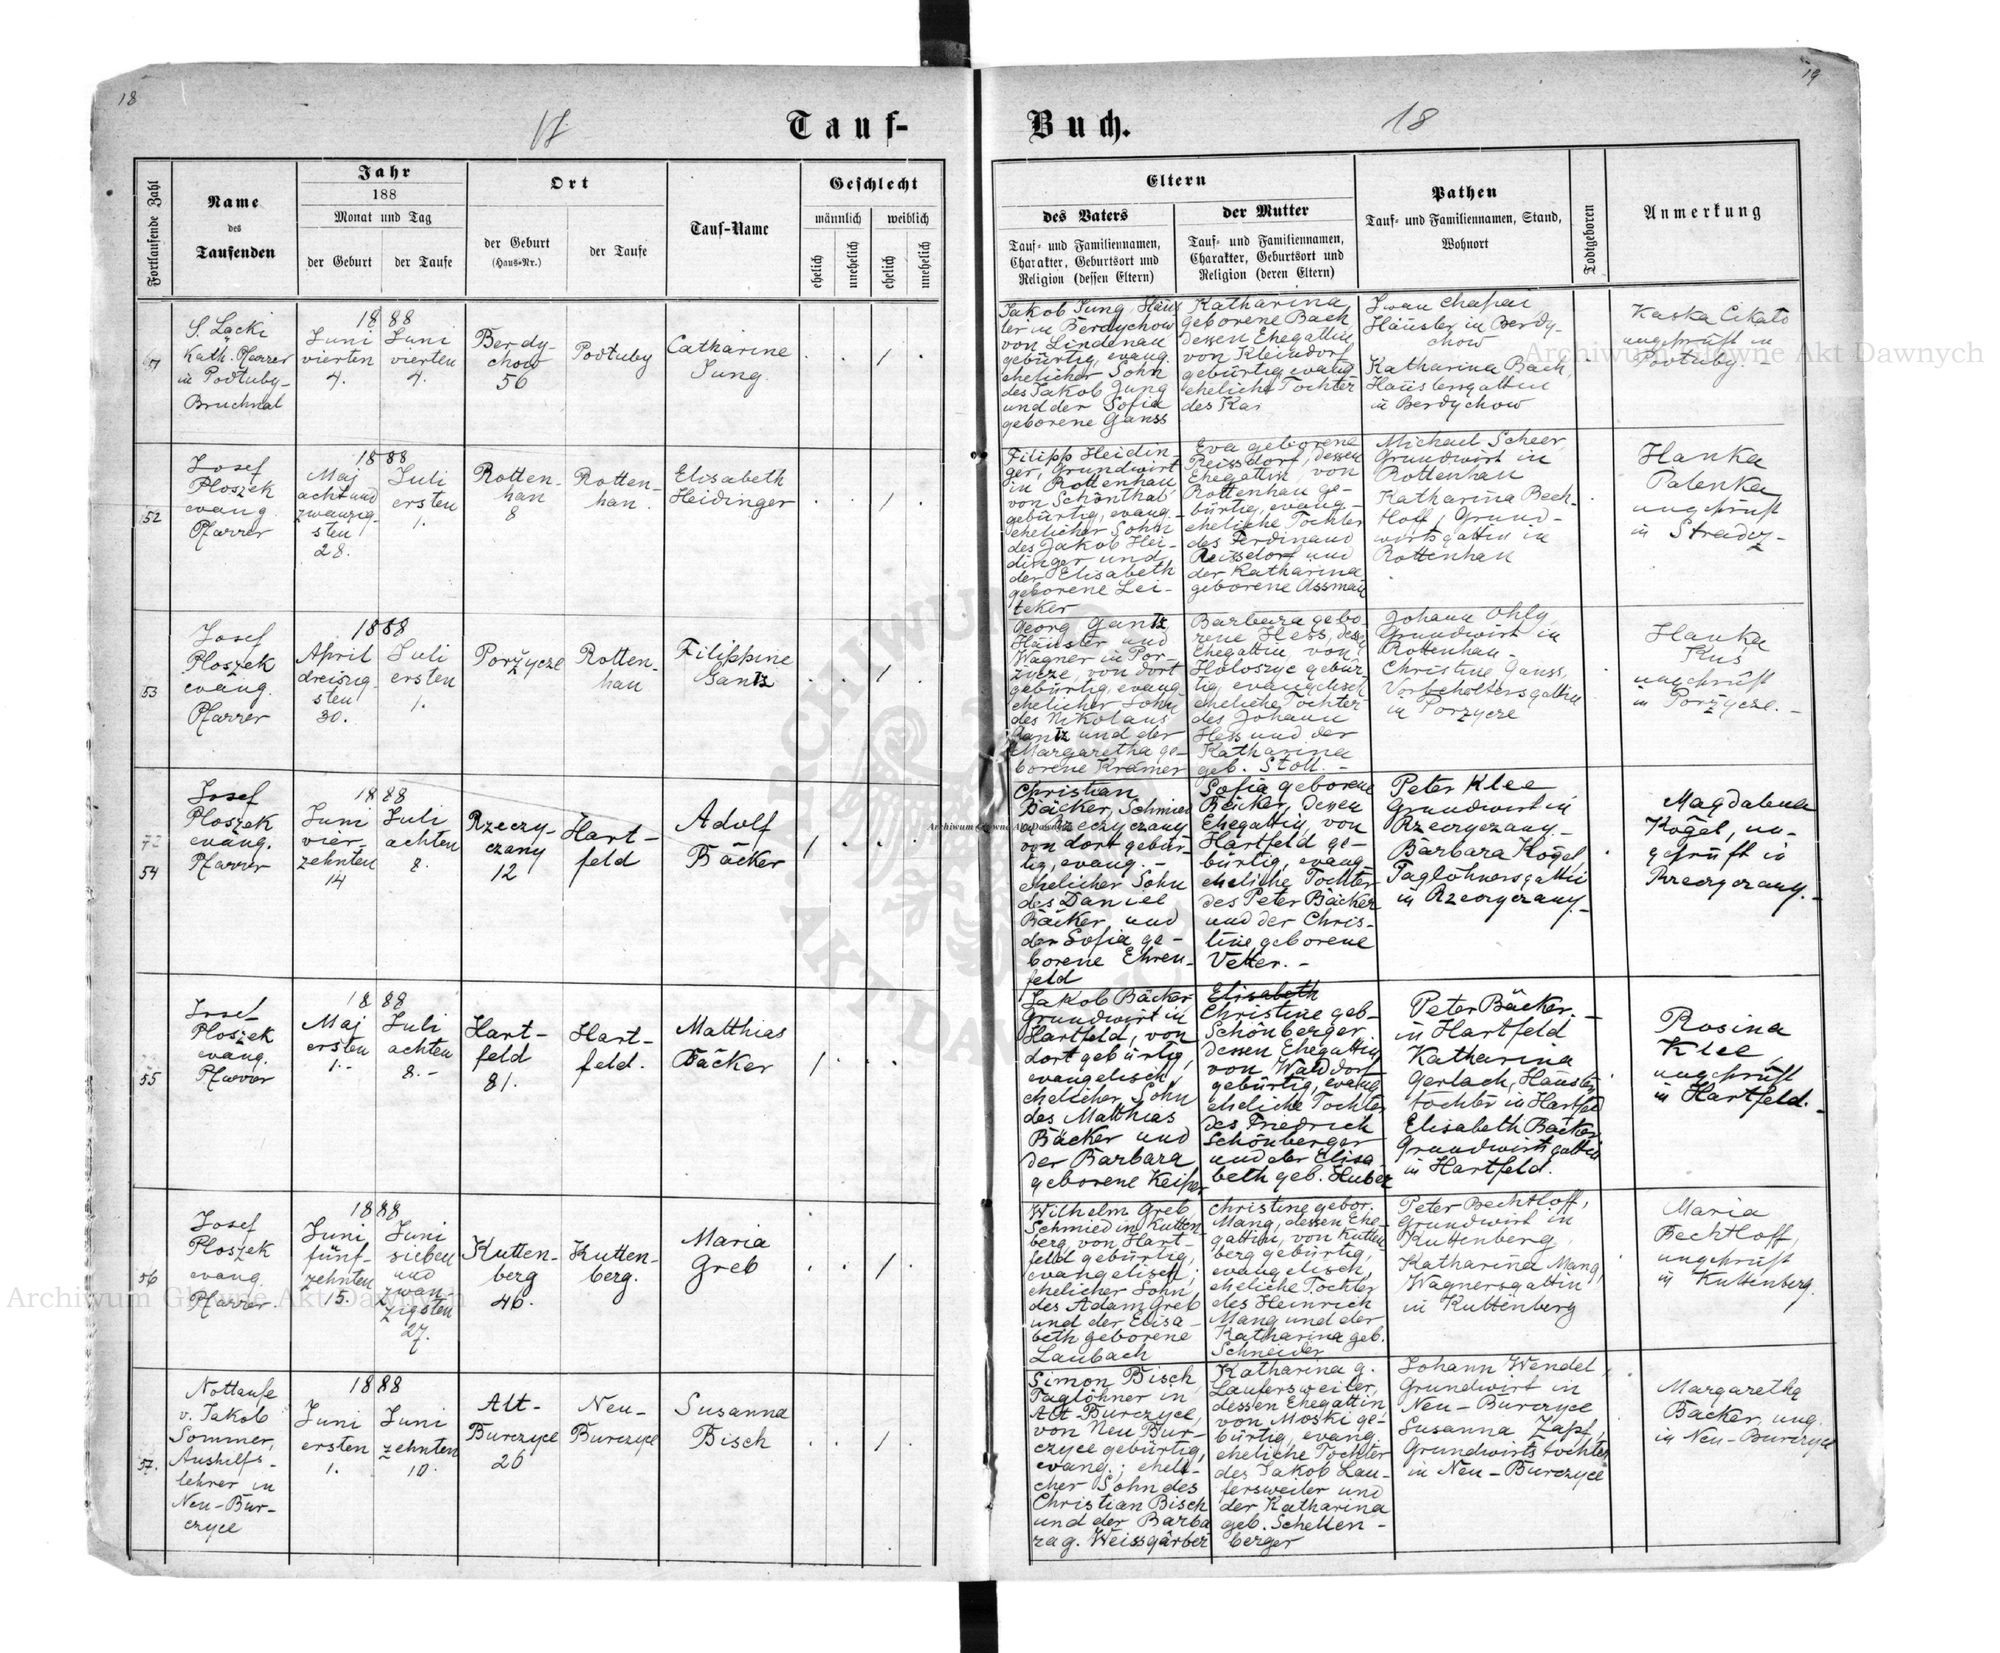 18
19
17
18
Tauf-
Buch.
Fortlaufende Zahl
Name
des
Taufenden
Jahr
188
Monat und Tag
der Geburt
der Taufe
Ort
der Geburt
(Haus-Nr.)
der Taufe
Tauf-Name
Geschlecht
männlich
weiblich
ehelich
unehelich
ehelich
unehelich
Eltern
des Vaters
Tauf- und Familiennamen,
Charakter, Geburtsort und
Religion (dessen Eltern)
der Mutter
Tauf- und Familiennamen,
Charakter, Geburtsort und
Religion (deren Eltern)
Pathen
Tauf- und Familiennamen, Stand,
Wohnort
Todtgeboren
Anmerkung
S. Łącki
Kath. Pfarrer
in Podłuby-
Bruchnal
1888
Juni
vierten
4.
Juni
vierten
4.
Berdy-
chow
56
Podłuby
Catharine
Jung
Jakob Jung Häus
ler in Berdychow
von Lindenau
gebürtig, evang.
ehelicher Sohn
des Jakob Jung
und der Sofia
geborene Ganss
Katharina
geborene Bach
dessen Ehegattin
von Kleindorf
gebürtig evang
eheliche Tochter
des Kas
Iwan
Häusler in Berdy-
chow
Katharina Bach,
Häuslersgattin
in Berdychow
Kaska
ungeprüft in
Podłuby. -
52
Josef
Ploszek
evang.
Pfarrer
1888
Maj
achtund
zwanzig-
sten
28.
Juli
ersten
1.
Rotten-
han
8
Rotten-
han.
Elisabeth
Heidinger
Filipp Heidin
ger, Grundwirt
in Rottenhan
von Schönthal
gebürtig, evang.
ehelicher Sohn
des Jakob Hei-
dinger und
der Elisabeth
geborene Lei-
teker
Eva geborene
Reissdorf, dessen
Ehegattin, von
Rottenhau ge-
bürtig, evang-
eheliche Tochter
des Ferdinand
Reissdorf und
der Katharina
geborene Assman
Michael Scheer
Grundwirt in
Rottenhan
Katharina Bech-
tloff, Grund-
wirtsgattin in
Rottenhan
Hanka
Palenka
ungeprüft
in
53
Josef
Ploszek
evang.
Pfarrer
1888
April
dreisig-
sten
30.
Juli
ersten
1.
Porzycze
Rotten-
han
Filippine
Gantz
Georg Gantz
Häusler und
Wagner in Por-
zycze, von dort
gebürtig, evang-
ehelicher Sohn
des Nikolaus
Gantz und der
Margaretha ge-
borene Krämer
Barbara gebo-
rene Hess, dess
Ehegattin, von
Holoszyc gebür-
tig, evangelisch
eheliche Tochter
des Johann
Hess und der
Katharina
geb. Stoll. -
Johann Ohly,
Grundwirt in
Rottenhan-
Christine Ganss,
Vorbehaltersgattin
in Porzycze
Hanka
Kus
ungeprüft
in Porzycze. -
54
Josef
Ploszek
evang.
Pfarrer
1888
Juni
vier-
zehnten
14
Juli
achten
8.
Rzeczy-
czany
12
Hart-
feld
Adolf
Bäcker
Christian
Bäcker, Schmied
in Rzeczyczany
von dort gebür-
tig, evang. -
ehelicher Sohn
des Daniel
Bäcker und
der Sofia ge-
borene Ehren-
feld
Sofia geborene
Bäcker, dessen
Ehegattin, von
Hartfeld ge-
bürtig, evang-
eheliche Tochter
des Peter Bäcker
und der Chris-
tine geborene
Vetter. -
Peter Klee
Grundwirt in
Rzeczyczany. -
Barbara Kogel,
Taglöhnersgattin
in Rzeczyczany. -
Magdalena
Kögel, un-
geprüft in
Rzeczyczany. -
55
Josef
Ploszek
evang.
Pfarrer
1888
Maj
ersten
1. -
Juli
achten
8. -
Hart-
feld
81.
Hart-
feld.
Matthias
Bäcker
Jakob Bäcker
Grundwirt in
Hartfeld, von
dort gebürtig,
evangelisch,
ehelicher Sohn
des Matthias
Bäcker und
der Barbara
geborene Keiper
Elisabeth
Christine geb-
Schönberger
dessen Ehegattin
von Walddorf
gebürtig, evang
eheliche Tochter
des Friedrich
Schönberger
und der Elisa
beth geb. Huber
Peter Bäcker. -
in Hartfeld
Katharina
Gerlach, Häusler
tochter in Hartfeld
Elisabeth Bäcker
Grundwirtsgattin
in Hartfeld.
Rosina
Klee,
ungeprüft
in Hartfeld. -
56
Josef
Ploszek
evang.
Pfarrer.
1888
Juni
fünf-
zehnten
15.
Juni
sieben
und
zwan
zigsten
27.
Kutten-
berg
46.
Kutten-
berg.
Maria
Greb
Wilhelm Greb,
Schmied in Kutten-
berg, von Hart-
feld gebürtig,
evangelisch;
ehelicher Sohn
des Adam Greb
und der Elisa-
beth geborene
Laubach
Christine gebor.
Mang, dessen Ehe-
gattin, von Kutten
berg gebürtig,
evangelisch,
eheliche Tochter
des Heinrich
Mang und der
Katharina geb.
Schneider
Peter Bechtloff,
Grundwirt in
Kuttenberg,
Katharina Mang,
Wagnersgattin
in Kuttenberg
Maria
Bechtloff,
ungeprüft
in Kuttenberg.
57.
Nottaufe
v. Jakob
Sommer,
Aushilfs-
lehrer in
Neu-Bur-
czyce
1888
Juni
ersten
1.
Juni
zehnten
10.
Alt-
Burczyce
26
Neu-
Burczyce
Susanna
Bisch
Simon Bisch,
Taglöhner in
Alt-Burczyce,
von Neu Bur-
czyce gebürtig,
evang.; eheli-
cher Sohn des
Christian Bisch
und der Barba
ra g. Weissgärber
Katharina g.
Laufersweiler,
dessen Ehegattin
von Moski ge-
bürtig, evang.
eheliche Tochter
des Jakob Lau-
fersweiler und
der Katharina
geb. Schellen-
berger
Johann Wendel,
Grundwirt in
Neu-Burczyce
Susanna Zapf,
Grundwirtstochter
in Neu-Burczyce
Margaretha
Backer, ung.
in Neu-Burczyce
Archiwum Główne Akt Dawnych
Archiwum Główne Akt Dawnych
Archiwum Główne Akt Dawnych